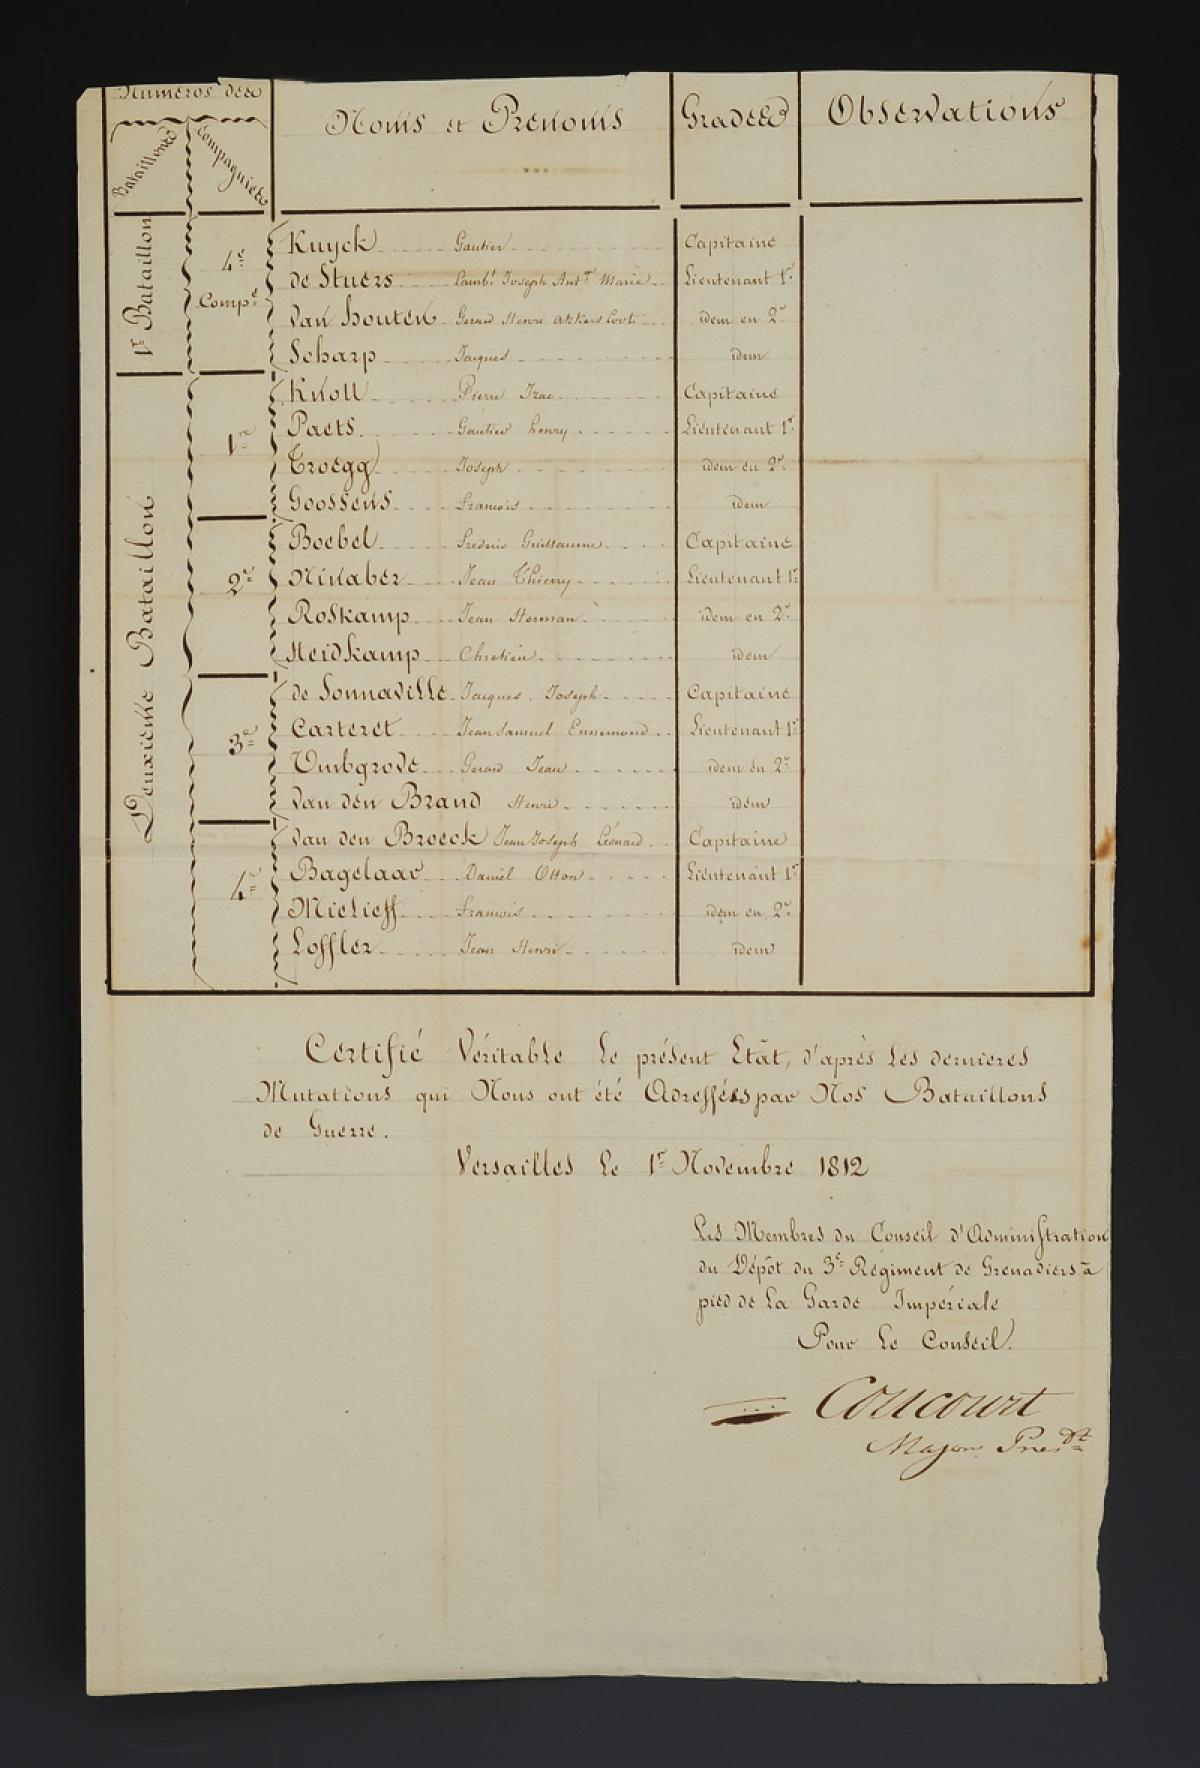 Numéros des
Bataillons Compagnies Noms et Prenoms Grades Observations
1r Bataillon
4e Compe
Kuyck Gautier Capitaine
de Stuers Lambt Joseph Antne Marie Lieutenant 1r
van houten Gerard Henri Akkers Loot idem en 2e
Scharp Jacques idem
Deuxième Bataillon
1re
Knoll Pierre Izac Capitaine
Paets Gautier henry Lieutenant 1r
Troegg Joseph idem en 2e
Goossens francois idem
2e
Boebel frederic Guillaume Capitaine
Ninaber Jean Thierry Lieutenant 1r
Roskamp Jean Herman idem en 2e
Heidkamp Chretien idem
3e
de Sonnaville Jacques Joseph Capitaine
Carteret Jean Samuel Ennemond Lieutenant 1r
Umbgrove Gerard Jean idem en 2e
van den Brand Henri idem
4e
van den Broeck Jean Joseph Léonard Capitaine
Bagelaar Daniel Otton Lieutenant 1r
Mielieff francois idem en 2e
Loffler Jean Henri idem
Certifié Véritable Le présent Etat, d'après Les dernieres
Mutations qui Nous ont été Adressées par Nos Bataillons
de Guerre.
Versailles Le 1r Novembre 1812
Les Membres du Conseil d'Administration
du Dépôt du 3e Régiment de Grenadiers à
pied de La Garde Impériale
Pour Le Conseil.
Major Presdt